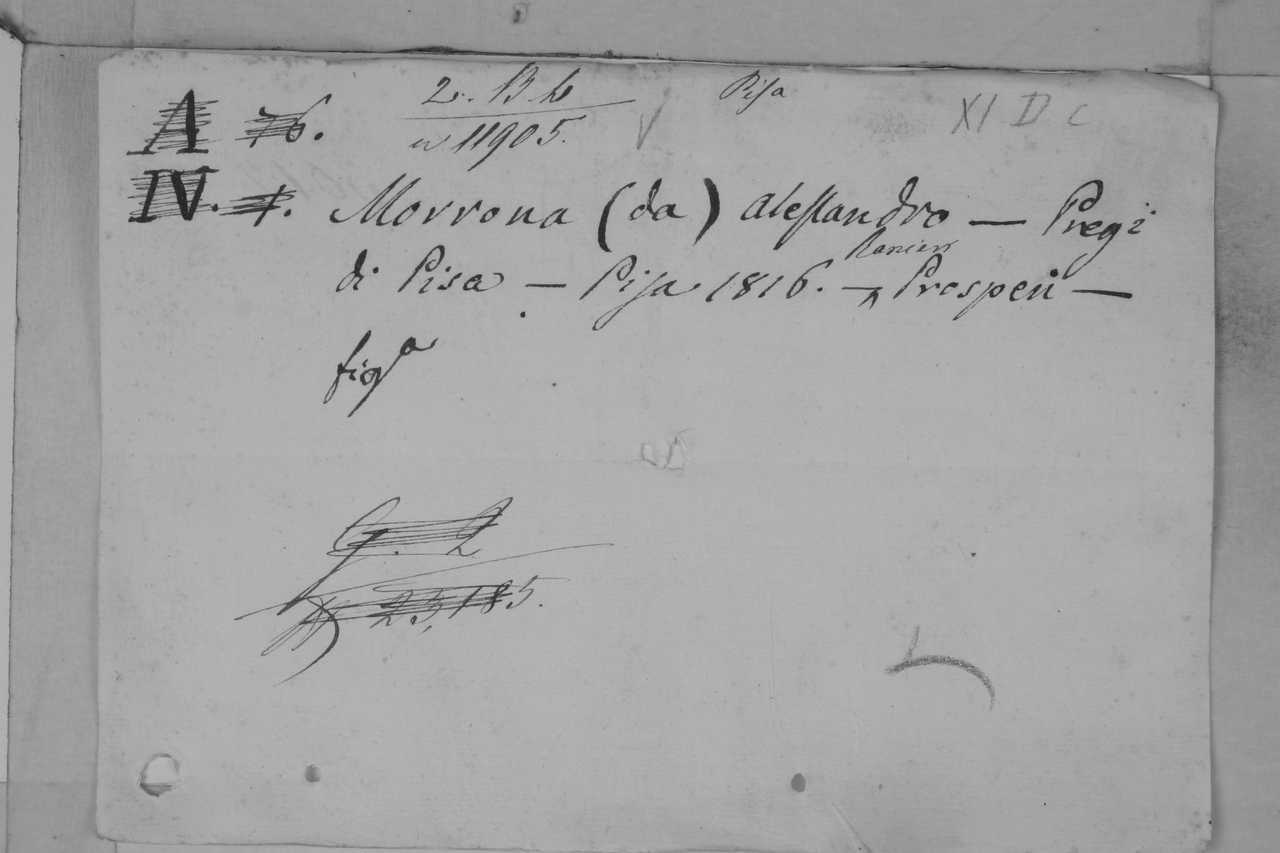 A 76. 2. B. b Pisa XI D c
n 11905.
IV. 7. Morrona (da) Alessandro — Pregi
di Pisa — Pisa 1816. — Ranieri Prosperi —
fig.a
G. 2
N 23,185.